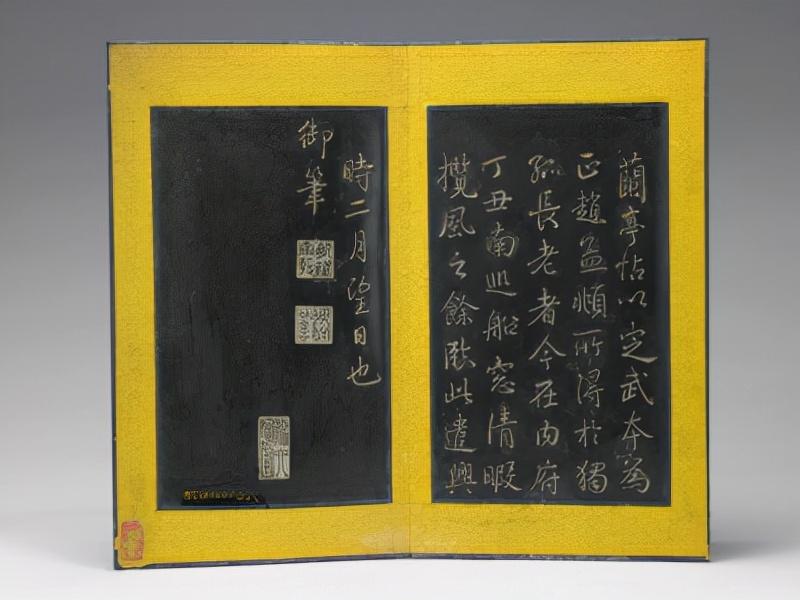 蘭亭帖以定武本為
正趙孟頫所得於獨
孤長老者今在內府
丁丑南巡船窓清暇
攬風之餘臨此遣興
時二月望日也
御筆